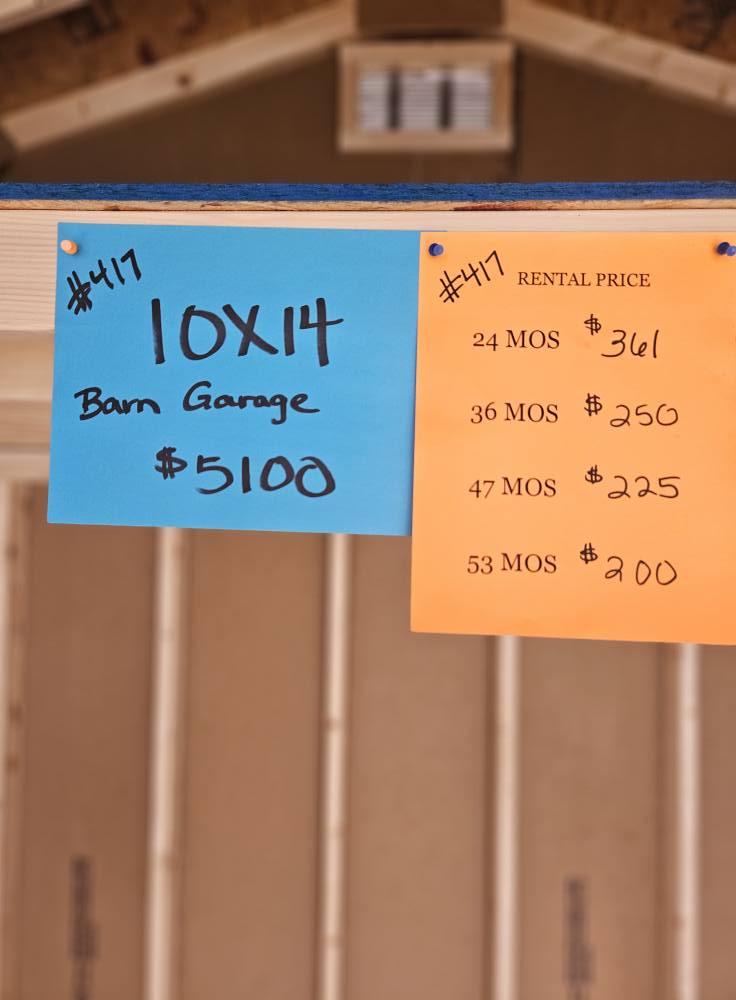 #417
10X14
Barn Garage
$5100
#417
RENTAL PRICE
24 MOS $361
36 MOS $250
47 MOS $225
53 MOS $200